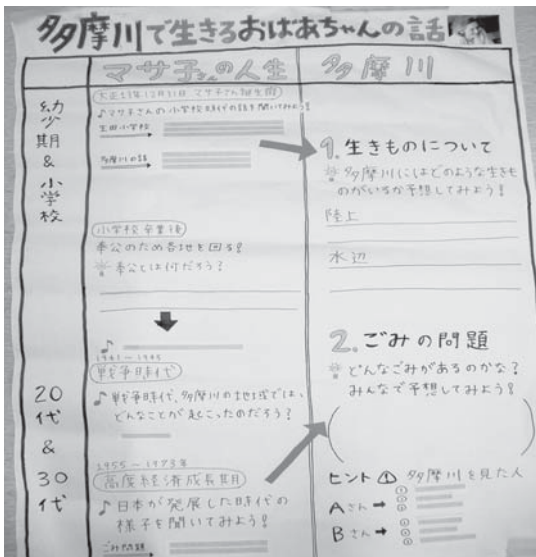 多摩川で生きるおばあちゃんの話
マサ子さんの人生
多摩川
幼少期&小学校
大正13年12月31日 マサ子さん誕生
♪マサ子さんの小学校時代の話を聞いてみよう!
生田小学校
多摩川の話
小学校卒業後
奉公のため各地を回る!
奉公とは何だろう?
1941〜1945
戦争時代
♪戦争時代、多摩川の地域では、
どんなことが起こったのだろう?
20代&30代
1955〜1973年
高度経済成長期
♪日本が発展した時代の
様子を聞いてみよう!
ごみ問題
1.生きものについて
多摩川にはどのような生きも
のがいるか予想してみよう!
陸上
水辺
2.ごみの問題
どんなごみがあるのかな?
みんなで予想してみよう!
ヒント① 多摩川を見た人
Aさん→①
②
③
Bさん→①
②
③